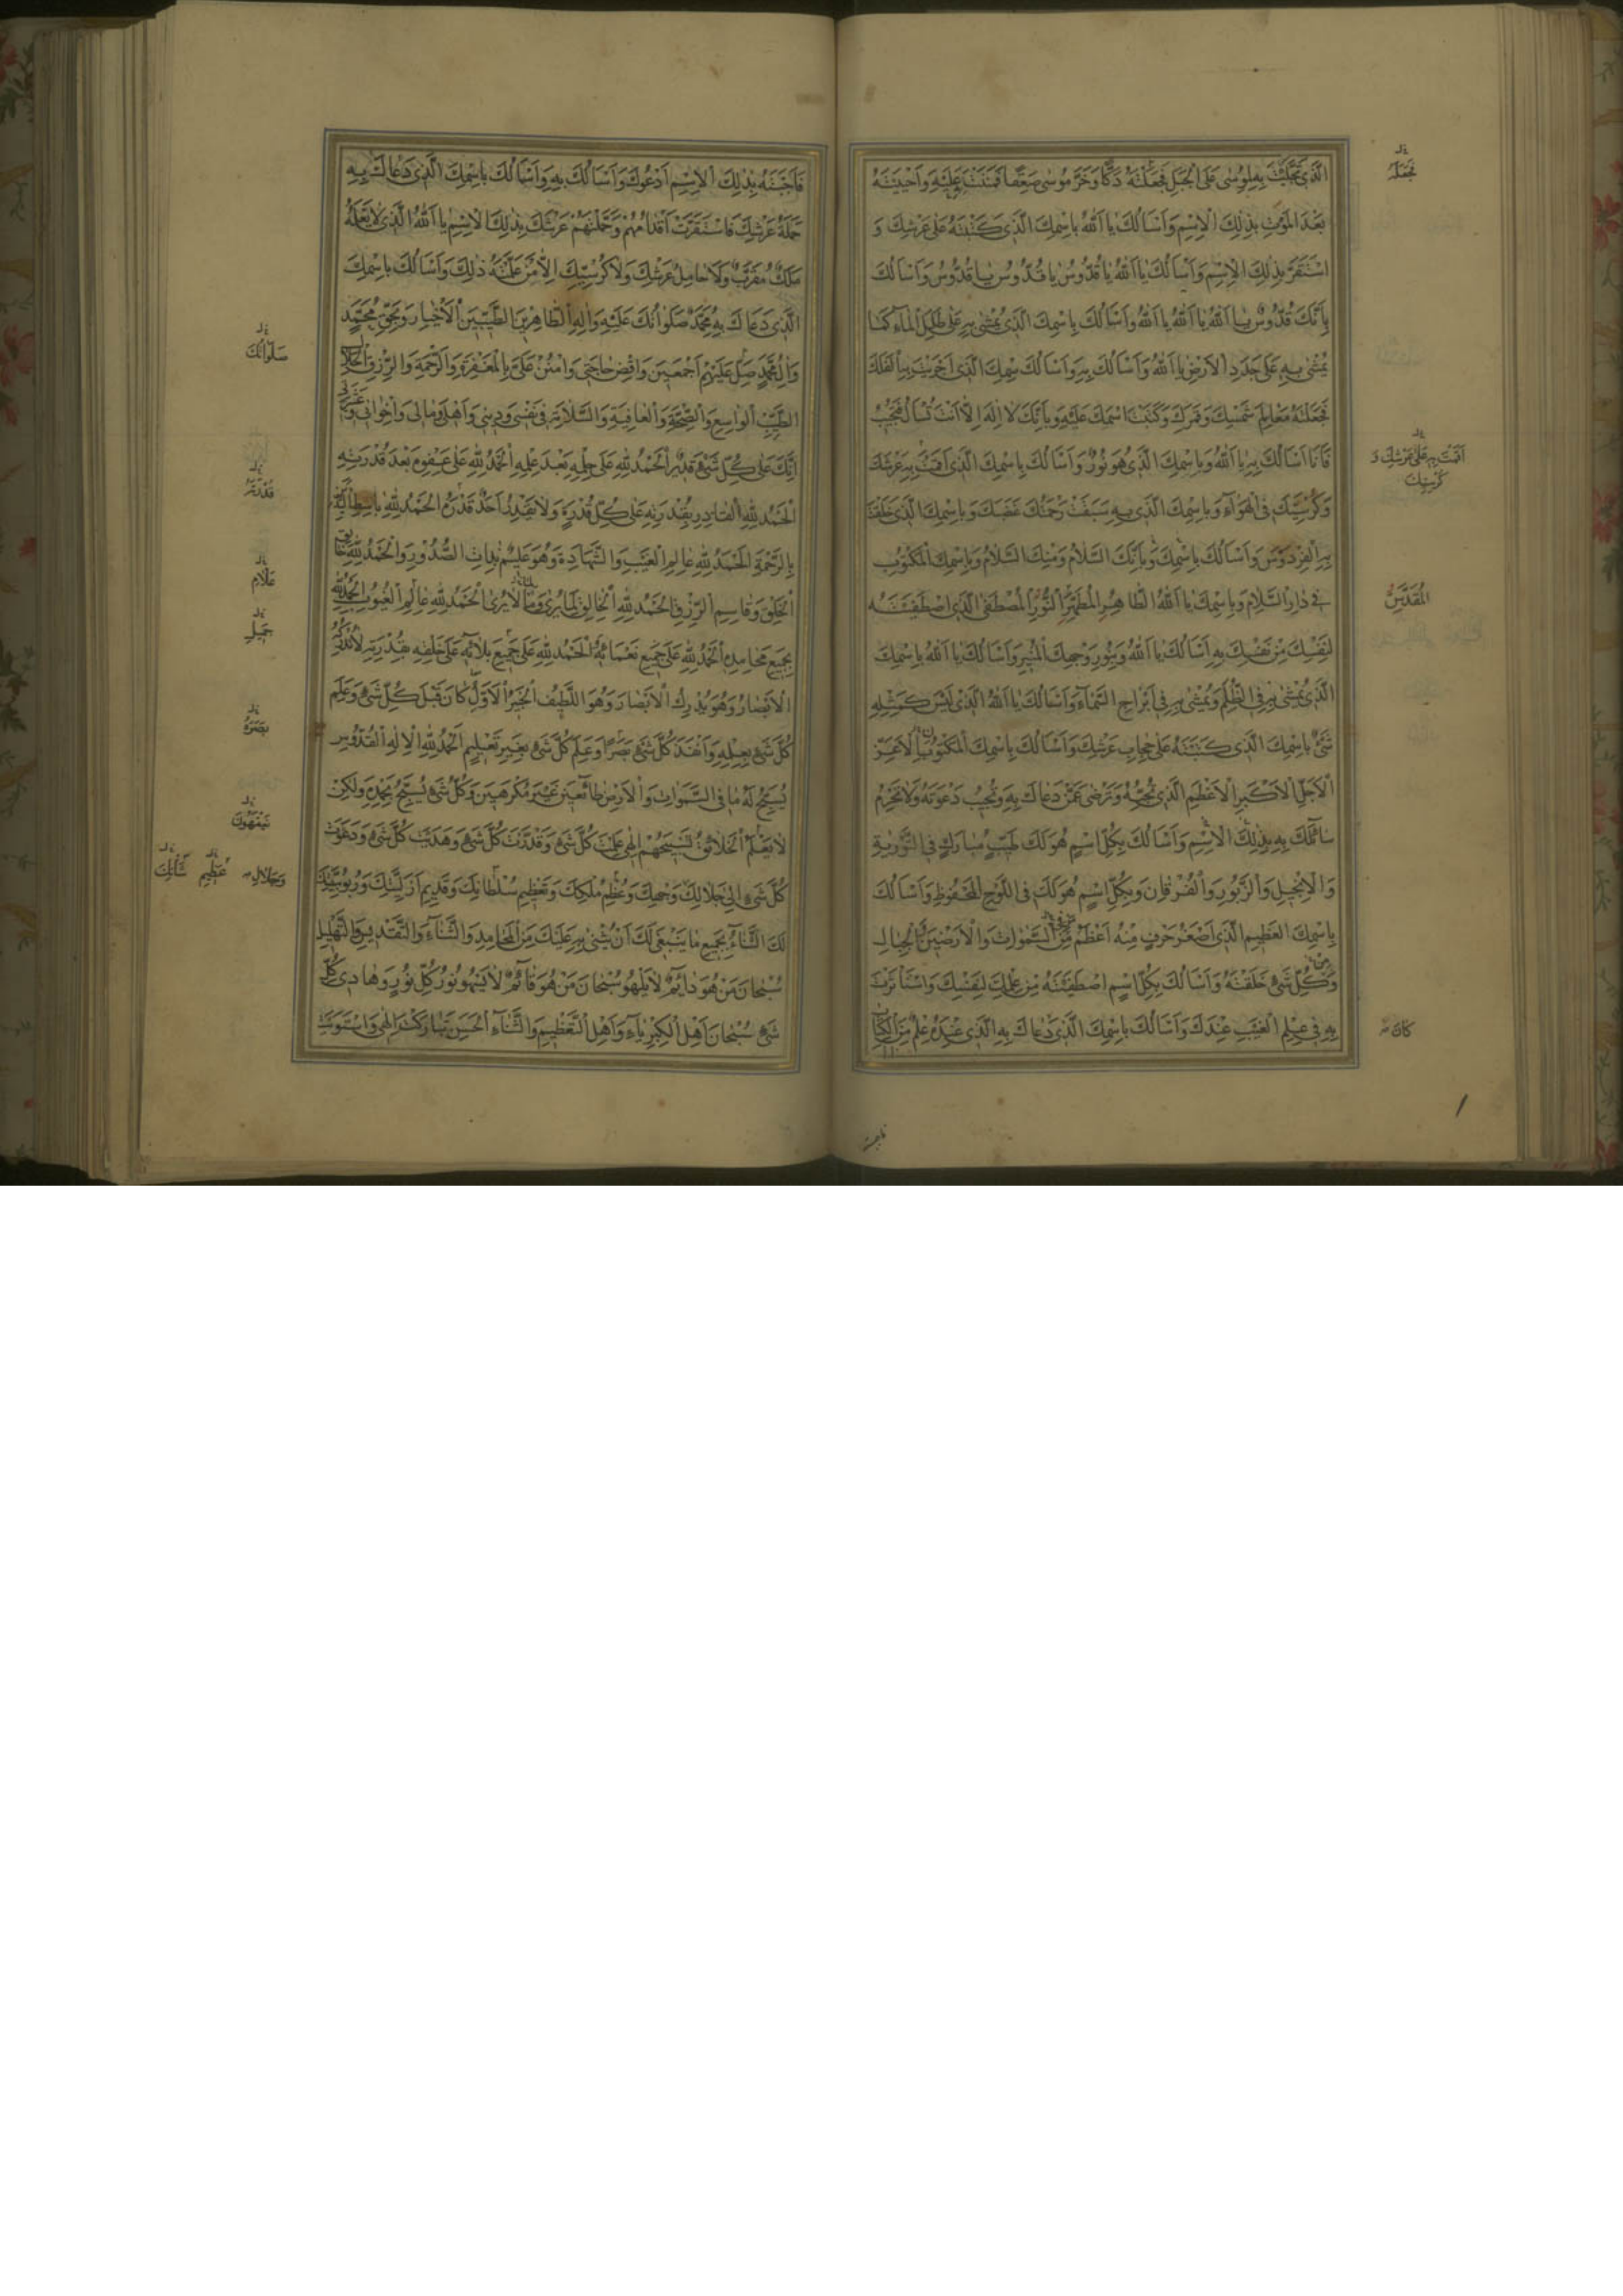 الَّذِي تَجَلَّيْتَ بِهِ لِمُوسٰى عَلَى الْجَبَلِ فَجَعَلْتَهُ دَكًّا وَخَرَّ مُوسٰى صَعِقًا فَمَنَنْتَ عَلَيْهِ وَاَحْيَيْتَهُ
بَعْدَ الْمَوْتِ بِذٰلِكَ الْاِسْمِ وَاَسْاَلُكَ يَا اَللّٰهُ بِاسْمِكَ الَّذِي كَتَبْتَهُ عَلٰى عَرْشِكَ وَ
اسْتَقَرَّ بِذٰلِكَ الْاِسْمِ وَاَسْاَلُكَ يَا اَللّٰهُ يَا قُدُّوسُ يَا قُدُّوسُ يَا قُدُّوسُ وَاَسْاَلُكَ
بِاَنَّكَ قُدُّوسٌ يَا اَللّٰهُ يَا اَللّٰهُ يَا اَللّٰهُ وَاَسْاَلُكَ بِاسْمِكَ الَّذِي يُمْشٰى بِهِ عَلٰى طَلَلِ الْمَاءِ كَمَا
يُمْشٰى بِهِ عَلٰى جَدَدِ الْاَرْضِ يَا اَللّٰهُ وَاَسْاَلُكَ بِهِ وَاَسْاَلُكَ بِاسْمِكَ الَّذِي اَجْرَيْتَ بِهِ الْفُلْكَ
فَجَعَلْتَهُ مَعَالِمَ شَمْسِكَ وَقَمَرِكَ وَكَتَبْتَ اسْمَكَ عَلَيْهِ وَبِاَنَّكَ لَا اِلٰهَ اِلَّا اَنْتَ تُسْاَلُ فَتُجِيبُ
فَاَنَا اَسْاَلُكَ بِهِ يَا اَللّٰهُ وَبِاسْمِكَ الَّذِي هُوَ نُورٌ وَاَسْاَلُكَ بِاسْمِكَ الَّذِي اَقَمْتَ بِهِ عَرْشَكَ
وَكُرْسِيَّكَ فِي الْهَوَاءِ وَبِاسْمِكَ الَّذِي بِهِ سَبَقَتْ رَحْمَتُكَ غَضَبَكَ وَبِاسْمِكَ الَّذِي خَلَقْتَ
بِهِ الْفِرْدَوْسَ وَاَسْاَلُكَ بِاسْمِكَ وَبِاَنَّكَ السَّلَامُ وَمِنْكَ السَّلَامُ وَبِاسْمِكَ الْمَكْتُوبِ
فِي دَارِ السَّلَامِ وَبِاسْمِكَ يَا اَللّٰهُ الطَّاهِرِ الْمُطَهَّرِ النُّورِ الْمُصْطَفَى الَّذِي اصْطَفَيْتَهُ
لِنَفْسِكَ مِنْ نَفْسِكَ بِهِ اَسْاَلُكَ يَا اَللّٰهُ وَبِنُورِ وَجْهِكَ الْمُنِيرِ وَاَسْاَلُكَ يَا اَللّٰهُ بِاسْمِكَ
الَّذِي يُمْشٰى بِهِ فِي الظُّلَمِ وَيُمْشٰى بِهِ فِي اَبْرَاجِ السَّمَاءِ وَاَسْاَلُكَ يَا اَللّٰهُ الَّذِي لَيْسَ كَمِثْلِهِ
شَيْءٌ بِاسْمِكَ الَّذِي كَتَبْتَهُ عَلٰى حِجَابِ عَرْشِكَ وَاَسْاَلُكَ بِاسْمِكَ الْمَكْتُوبِ الْاَعَزِّ
الْاَجَلِّ الْاَكْبَرِ الْاَعْظَمِ الَّذِي تُحِبُّهُ وَتَرْضٰى عَمَّنْ دَعَاكَ بِهِ وَتُجِيبُ دَعْوَتَهُ وَلَا تَحْرِمُ
سَائِلَكَ بِهِ بِذٰلِكَ الْاِسْمِ وَاَسْاَلُكَ بِكُلِّ اسْمٍ هُوَ لَكَ طَيِّبٍ مُبَارَكٍ فِي التَّوْرٰيةِ
وَالْاِنْجِيلِ وَالزَّبُورِ وَالْفُرْقَانِ وَبِكُلِّ اسْمٍ هُوَ لَكَ فِي اللَّوْحِ الْمَحْفُوظِ وَاَسْاَلُكَ
بِاسْمِكَ الْعَظِيمِ الَّذِي اَصْغَرُ حَرْفٍ مِنْهُ اَعْظَمُ مِنَ السَّمٰوَاتِ وَالْاَرَضِينَ وَالْجِبَالِ
وَكُلِّ شَيْءٍ خَلَقْتَهُ وَاَسْاَلُكَ بِكُلِّ اسْمٍ اصْطَفَيْتَهُ مِنْ عِلْمِكَ لِنَفْسِكَ وَاسْتَاْثَرْتَ
بِهِ فِي عِلْمِ الْغَيْبِ عِنْدَكَ وَاَسْاَلُكَ بِاسْمِكَ الَّذِي دَعَاكَ بِهِ الَّذِي عِنْدَهُ عِلْمٌ مِنَ الْكِتَابِ
فَجَعَلَهُ
اَقَمْتَ بِهِ عَلٰى عَرْشِكَ وَ
كُرْسِيِّكَ
الْمُقَدَّسِ
كَانَ
فَاَجَبْتَهُ بِذٰلِكَ الْاِسْمِ اَدْعُوكَ وَاَسْاَلُكَ بِهِ وَاَسْاَلُكَ بِاسْمِكَ الَّذِي دَعَاكَ بِهِ
حَمَلَةُ عَرْشِكَ فَاسْتَقَرَّتْ اَقْدَامُهُمْ وَحَمَّلْتَهُمْ عَرْشَكَ بِذٰلِكَ الْاِسْمِ يَا اَللّٰهُ الَّذِي لَا يَعْلَمُهُ
مَلَكٌ مُقَرَّبٌ وَلَا حَامِلُ عَرْشِكَ وَلَا كُرْسِيِّكَ اِلَّا مَنْ عَلَّمْتَهُ ذٰلِكَ وَاَسْاَلُكَ بِاسْمِكَ
الَّذِي دَعَاكَ بِهِ مُحَمَّدٌ صَلَوَاتُكَ عَلَيْهِ وَاٰلِهِ الطَّاهِرِينَ الطَّيِّبِينَ الْاَخْيَارِ وَبِحَقِّ مُحَمَّدٍ
وَاٰلِ مُحَمَّدٍ صَلِّ عَلَيْهِمْ اَجْمَعِينَ وَاقْضِ حَاجَتِي وَامْنُنْ عَلَيَّ بِالْمَغْفِرَةِ وَالرَّحْمَةِ وَالرِّزْقِ الْحَلَالِ
الطَّيِّبِ الْوَاسِعِ وَالصِّحَّةِ وَالْعَافِيَةِ وَالسَّلَامَةِ فِي نَفْسِي وَدِينِي وَاَهْلِي وَمَالِي وَاِخْوَانِي
اِنَّكَ عَلٰى كُلِّ شَيْءٍ قَدِيرٌ اَلْحَمْدُ لِلّٰهِ عَلٰى حِلْمِهِ بَعْدَ عِلْمِهِ اَلْحَمْدُ لِلّٰهِ عَلٰى عَفْوِهِ بَعْدَ قُدْرَتِهِ
اَلْحَمْدُ لِلّٰهِ الْقَادِرِ بِقُدْرَتِهِ عَلٰى كُلِّ قُدْرَةٍ وَلَا يَقْدِرُ اَحَدٌ قَدْرَهُ الْحَمْدُ لِلّٰهِ بَاسِطِ الْيَدَيْنِ
بِالرَّحْمَةِ الْحَمْدُ لِلّٰهِ عَالِمِ الْغَيْبِ وَالشَّهَادَةِ وَهُوَ عَلِيمٌ بِذَاتِ الصُّدُورِ وَالْحَمْدُ لِلّٰهِ خَالِقِ
الْخَلْقِ وَقَاسِمِ الرِّزْقِ الْحَمْدُ لِلّٰهِ الْخَالِقِ لِمَا يُرٰى وَمَا لَا يُرٰى اَلْحَمْدُ لِلّٰهِ عَالِمِ الْغُيُوبِ الْحَمْدُ لِلّٰهِ
بِجَمِيعِ مَحَامِدِهِ اَلْحَمْدُ لِلّٰهِ عَلٰى جَمِيعِ نَعْمَائِهِ الْحَمْدُ لِلّٰهِ عَلٰى جَمِيعِ بَلَائِهِ عَلٰى خَلْقِهِ بِقُدْرَتِهِ لَا تُدْرِكُهُ
الْاَبْصَارُ وَهُوَ يُدْرِكُ الْاَبْصَارَ وَهُوَ اللَّطِيفُ الْخَبِيرُ الْاَوَّلُ كَانَ قَبْلَ كُلِّ شَيْءٍ وَعَلِمَ
كُلَّ شَيْءٍ بِعِلْمِهِ وَاَنْفَذَ كُلَّ شَيْءٍ بَصَرًا وَعَلِمَ كُلَّ شَيْءٍ بِغَيْرِ تَعْلِيمٍ اَلْحَمْدُ لِلّٰهِ الْاِلٰهِ الْقُدُّوسِ
يُسَبِّحُ لَهُ مَا فِي السَّمٰوَاتِ وَالْاَرْضِ طَائِعِينَ غَيْرَ مُكْرَهِينَ وَكُلُّ شَيْءٍ يُسَبِّحُ بِحَمْدِهِ وَلٰكِنْ
لَا يَعْلَمُ الْخَلَائِقُ تَسْبِيحَهُمْ اِلٰهِي عَلِمْتَ كُلَّ شَيْءٍ وَقَدَّرْتَ كُلَّ شَيْءٍ وَهَدَيْتَ كُلَّ شَيْءٍ وَدَعَوْتَ
كُلَّ شَيْءٍ اِلٰى جَلَالِكَ وَجْهِكَ وَعُظْمِ مُلْكِكَ وَتَعْظِيمِ سُلْطَانِكَ وَقَدِيمِ اَزَلِيَّتِكَ وَرُبُوبِيَّتِكَ
لَكَ الثَّنَاءُ بِجَمِيعِ مَا يَنْبَغِي لَكَ اَنْ يُثْنٰى بِهِ عَلَيْكَ مِنَ الْمَحَامِدِ وَالثَّنَاءِ وَالتَّقْدِيسِ وَالتَّهْلِيلِ
سُبْحَانَ مَنْ هُوَ دَائِمٌ لَا يَلْهُو سُبْحَانَ مَنْ هُوَ قَائِمٌ لَا يَسْهُو نُورُ كُلِّ نُورٍ وَهَادِي كُلِّ
شَيْءٍ سُبْحَانَ اَهْلِ الْكِبْرِيَاءِ وَاَهْلِ التَّعْظِيمِ وَالثَّنَاءِ الْحَسَنِ تَبَارَكْتَ اِلٰهِي وَاسْتَوَيْتَ
صَلَوَاتُكَ
قُدْرَتَهُ
عَلَّامِ
جَمِيلِ
بَصَرُهُ
يَفْقَهُونَ
وَجَلَالِ عَظِيمِ شَأْنِكَ